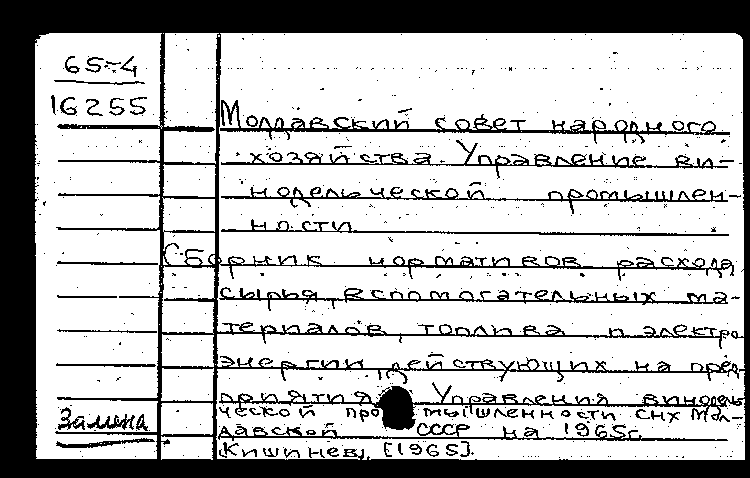 65-4
16255
Молдавский совет народного
хозяйства. Управление ви-
нодельческой промышлен-
ности
Сборник нормативов расхода
сырья, вспомогательных ма-
териалов, топлива и электро
энергии действующих на пред-
приятиях Управления винодель
ческой промышленности СНХ Мол-
Замена
давской СССР на 1965г.
Кишинев, [1965].